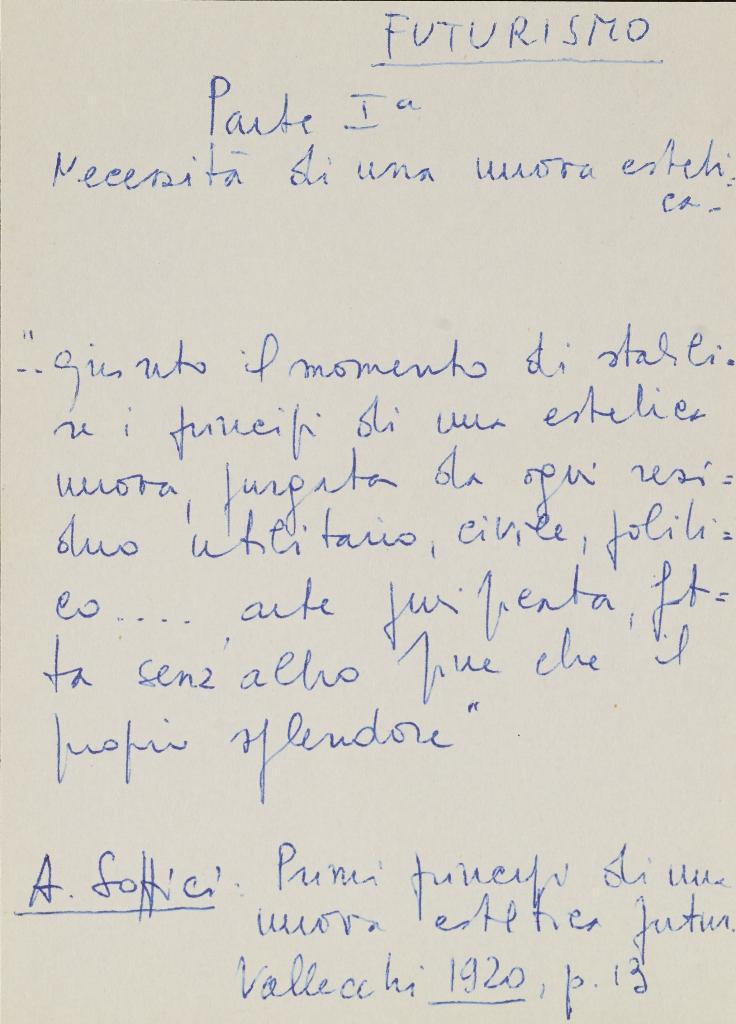 FUTURISMO
Parte Iª
Necessità di una nuova esteti-
ca-
"... giunto il momento di stabili-
re i principi di una estetica
nuova, purgata da ogni resi=
duo utilitario, civile, politi=
co.... arte purificata, fat=
ta senz'altro fine che il
proprio splendore"
A. Soffici: Primi principi di una
nuova estetica futur.
Vallecchi 1920, p. 13